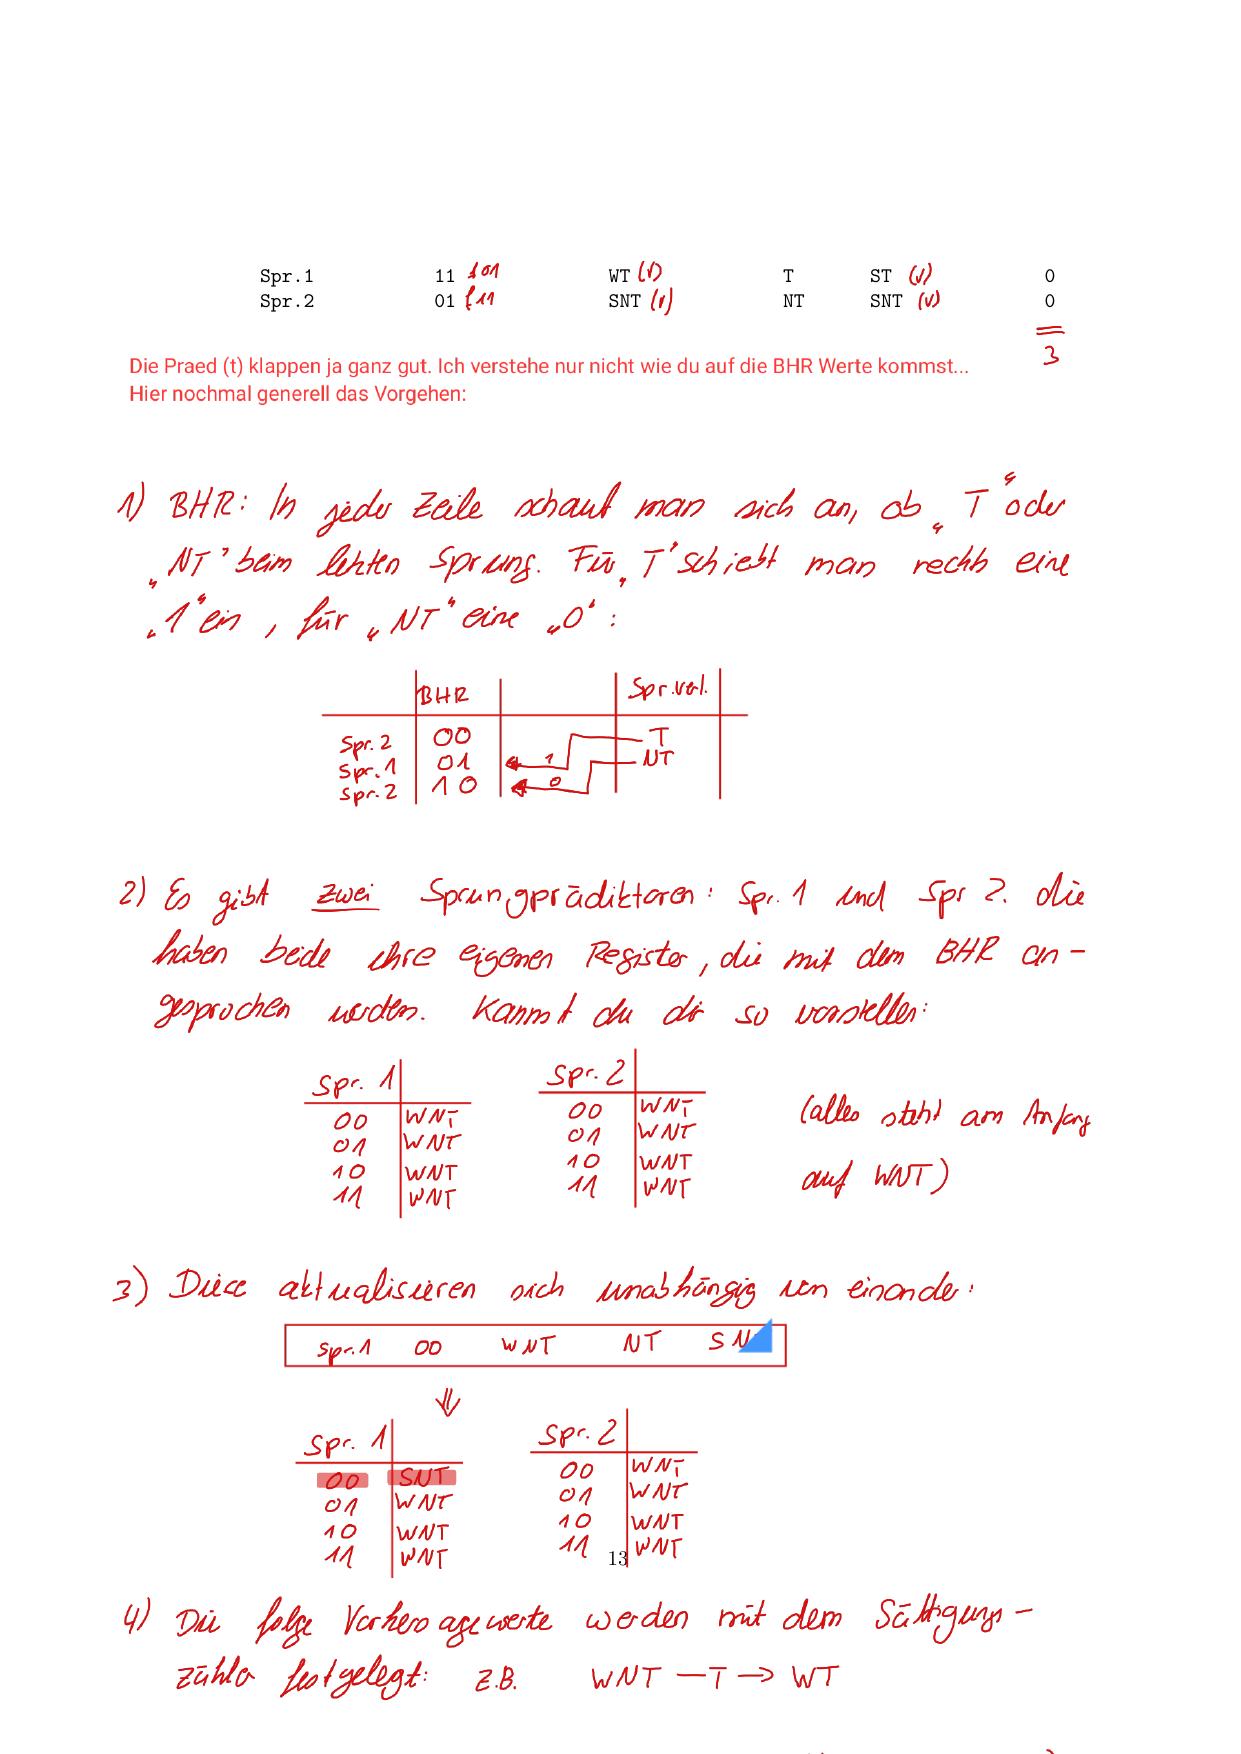 Spr.1 11 f 01 WT (f) T ST (√) 0
Spr.2 01 f 11 SNT (r) NT SNT (v) 0
3
Die Praed (t) klappen ja ganz gut. Ich verstehe nur nicht wie du auf die BHR Werte kommst...
Hier nochmal generell das Vorgehen:
1) BHR: In jeder Zeile schaut man sich an, ob „T“ oder
„NT“ beim letzten Sprung. Für „T“ schiebt man rechts eine
„1“ ein, für „NT“ eine „0“:
BHR Spr.verl.
Spr.2 00 T
Spr.1 01 1 NT
Spr.2 10 0
2) Es gibt zwei Sprungprädiktoren: Spr.1 und Spr 2. die
haben beide ihre eigenen Register, die mit dem BHR an-
gesprochen werden. Kannst du dir so vorstellen:
Spr. 1 Spr. 2
00 WNT 00 WNT (alles steht am Anfang
01 WNT 01 WNT
10 WNT 10 WNT auf WNT)
11 WNT 11 WNT
3) Diese aktualisieren sich unabhängig von einander:
Spr.1 00 WNT NT SN
Spr. 1 Spr. 2
00 SNT 00 WNT
01 WNT 01 WNT
10 WNT 10 WNT
11 WNT 11 WNT
13
4) Die folge Vorhersagewerte werden mit dem Sättigungs-
zähler festgelegt: z.B. WNT — T → WT